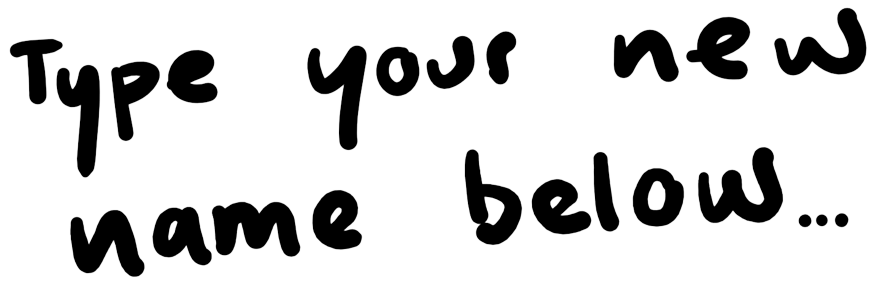 Type your new
name below...